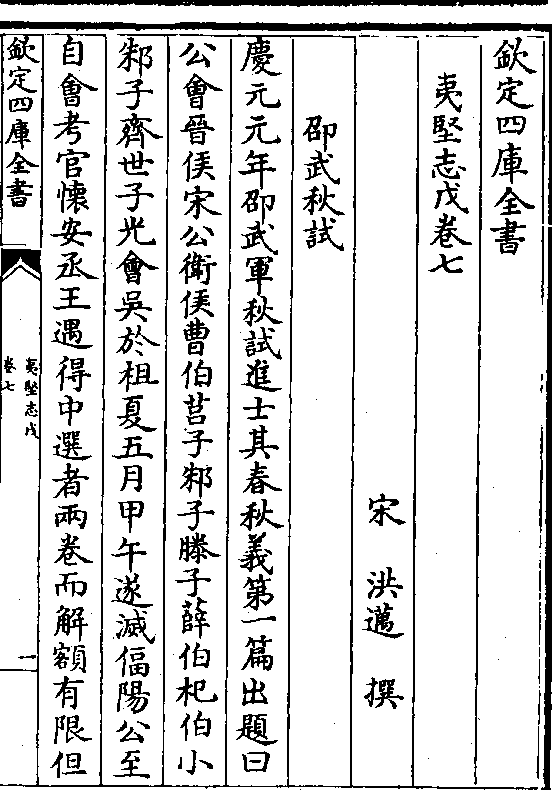 欽定四庫全書
夷堅志戊卷七
宋 洪邁 撰
邵武秋試
慶元元年邵武軍秋試進士其春秋義第一篇出題曰
公會晉侯宋公衛侯曹伯莒子邾子滕子薛伯杞伯小
邾子齊世子光會吳於柤夏五月甲午遂滅偪陽公至
自會考官懷安丞王遇得中選者兩卷而解額有限但
欽定四庫全書
夷堅志戊
卷七
一